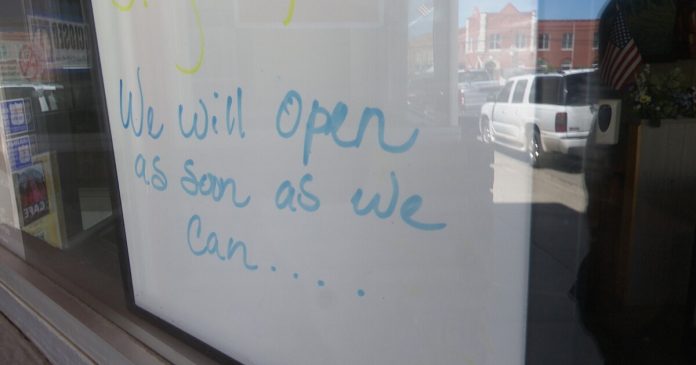 We will open
as soon as we
can.....
CAFE